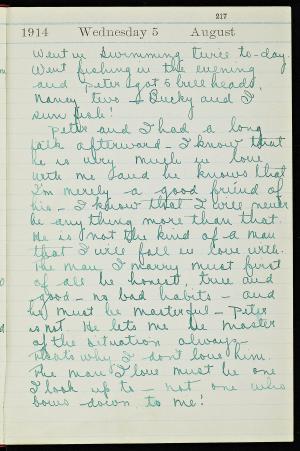 217
1914 Wednesday 5 August
Went in swimming twice to-day.
Went fishing in the evening
and Peter got 5 bull heads,
Nancy two - Bucky and I
sun fish!
Peter and I had a long
talk afterward - I know that
he is very much in love
with me and he knows that
I'm merely a good friend of
his - I know that I will never
be anything more than that.
He is not the kind of a man
that I will fall in love with.
The man I marry must first
of all be honest, true and
good - no bad habits - and
he must be masterful - Peter
is not. He lets me be master
of the situation always -
that's why I don't love him.
The man I love must be one
I look up to - not one who
bows down to me!